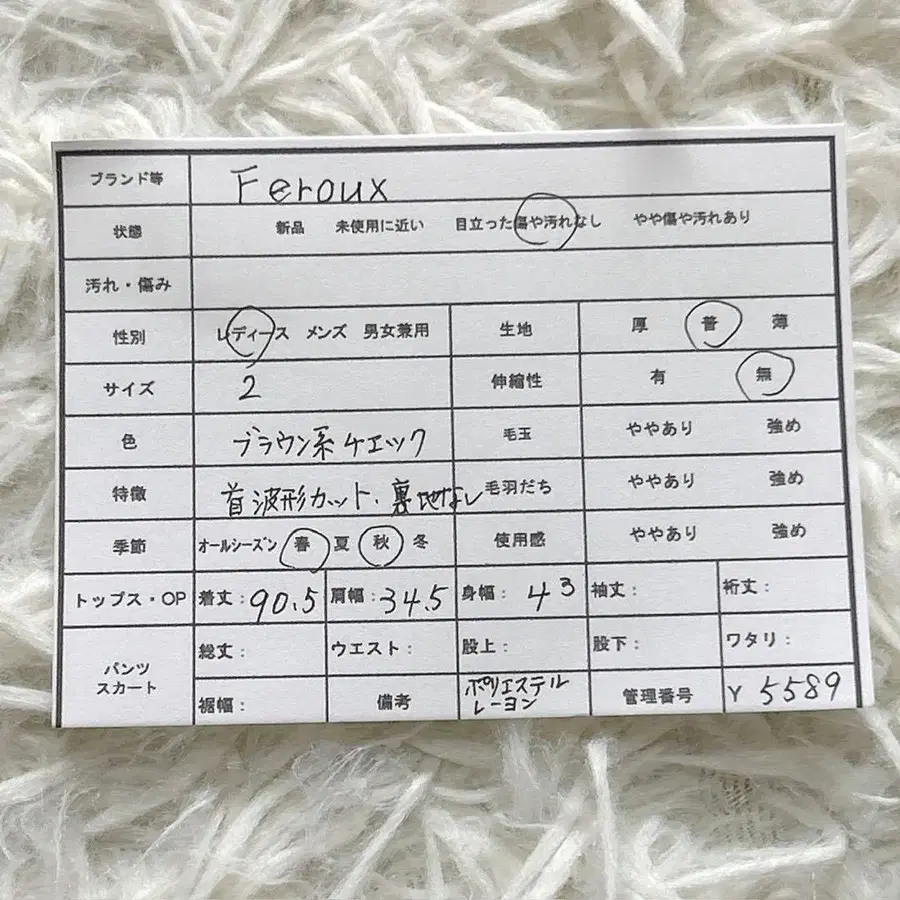 ブランド等 Feroux
状態 新品 未使用に近い 目立った傷や汚れなし やや傷や汚れあり
汚れ・傷み
性別 レディース メンズ 男女兼用 生地 厚 普 薄
サイズ 2 伸縮性 有 無
色 ブラウン系チェック 毛玉 ややあり 強め
特徴 首波形カット、裏地なし 毛羽だち ややあり 強め
季節 オールシーズン 春 夏 秋 冬 使用感 ややあり 強め
トップス・OP 着丈:90.5 肩幅:34.5 身幅:43 袖丈: 裄丈:
パンツ
スカート
総丈: ウエスト: 股上: 股下: ワタリ:
裾幅: 備考 ポリエステル
レーヨン
管理番号 Y5589